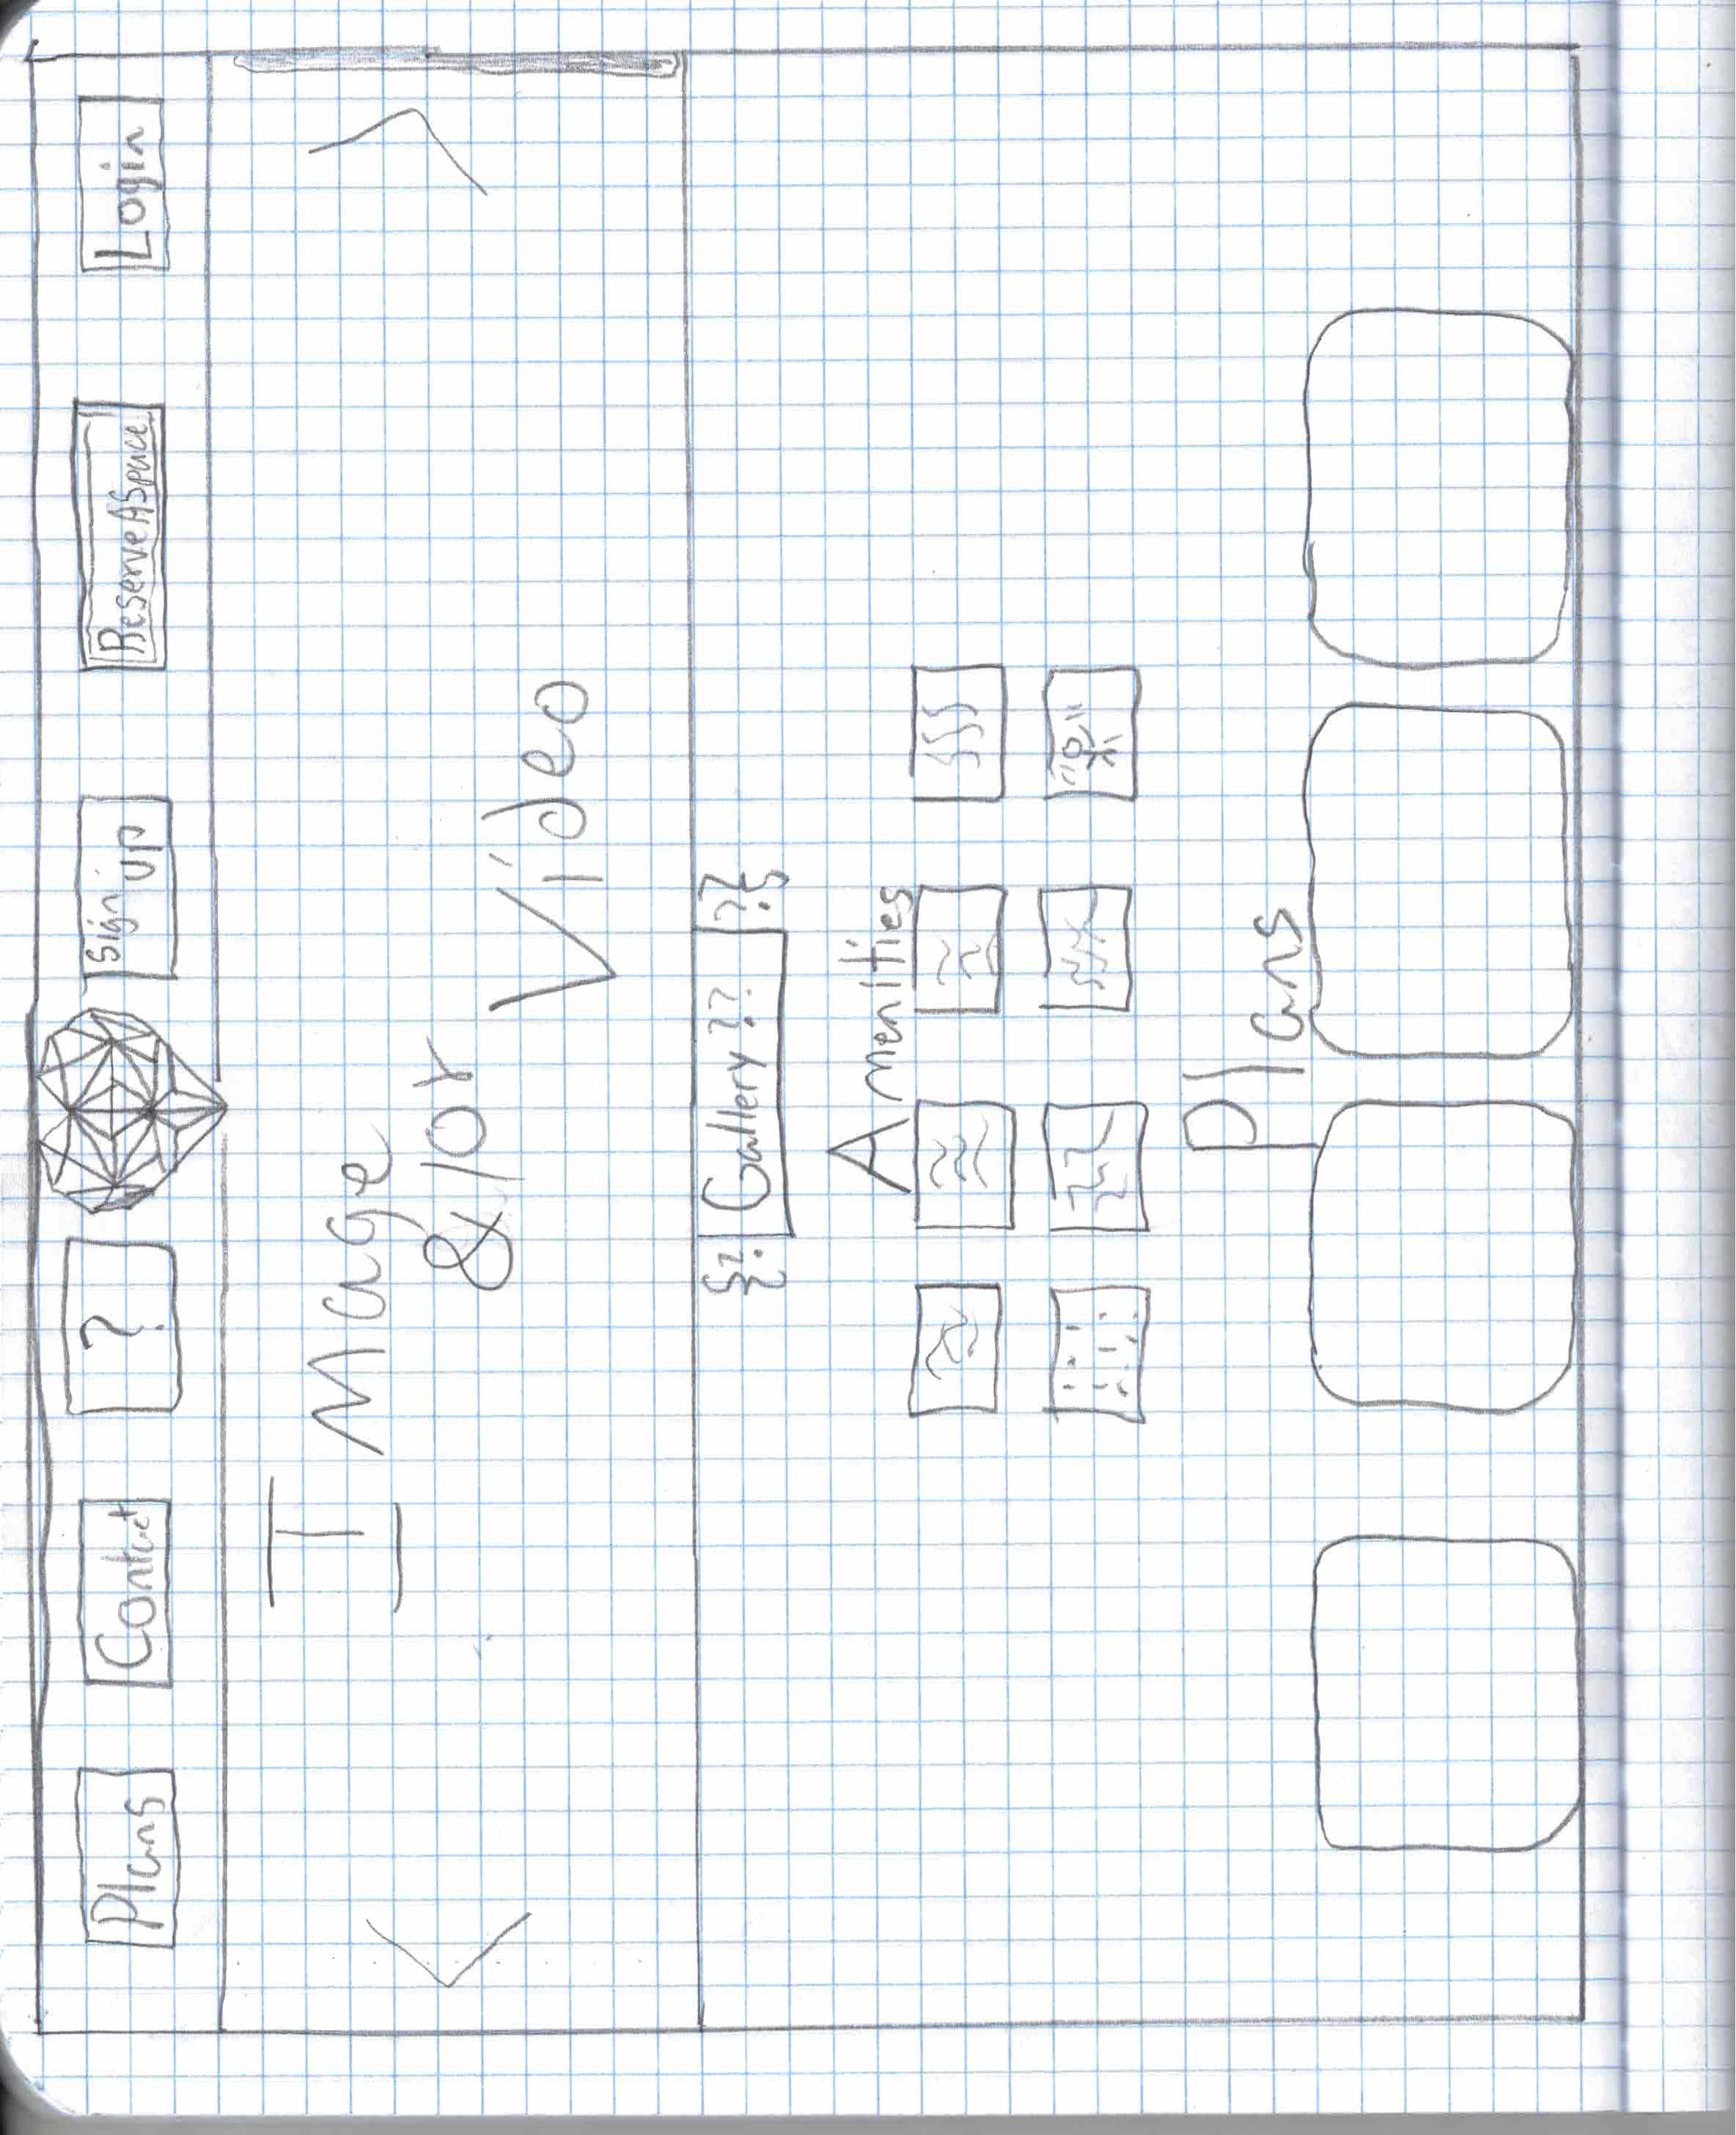 Plans
Contact
?
Sign up
Reserve A Space
Login
Image
&/or
Video
??
Gallery ??
??
Amenities
Plans